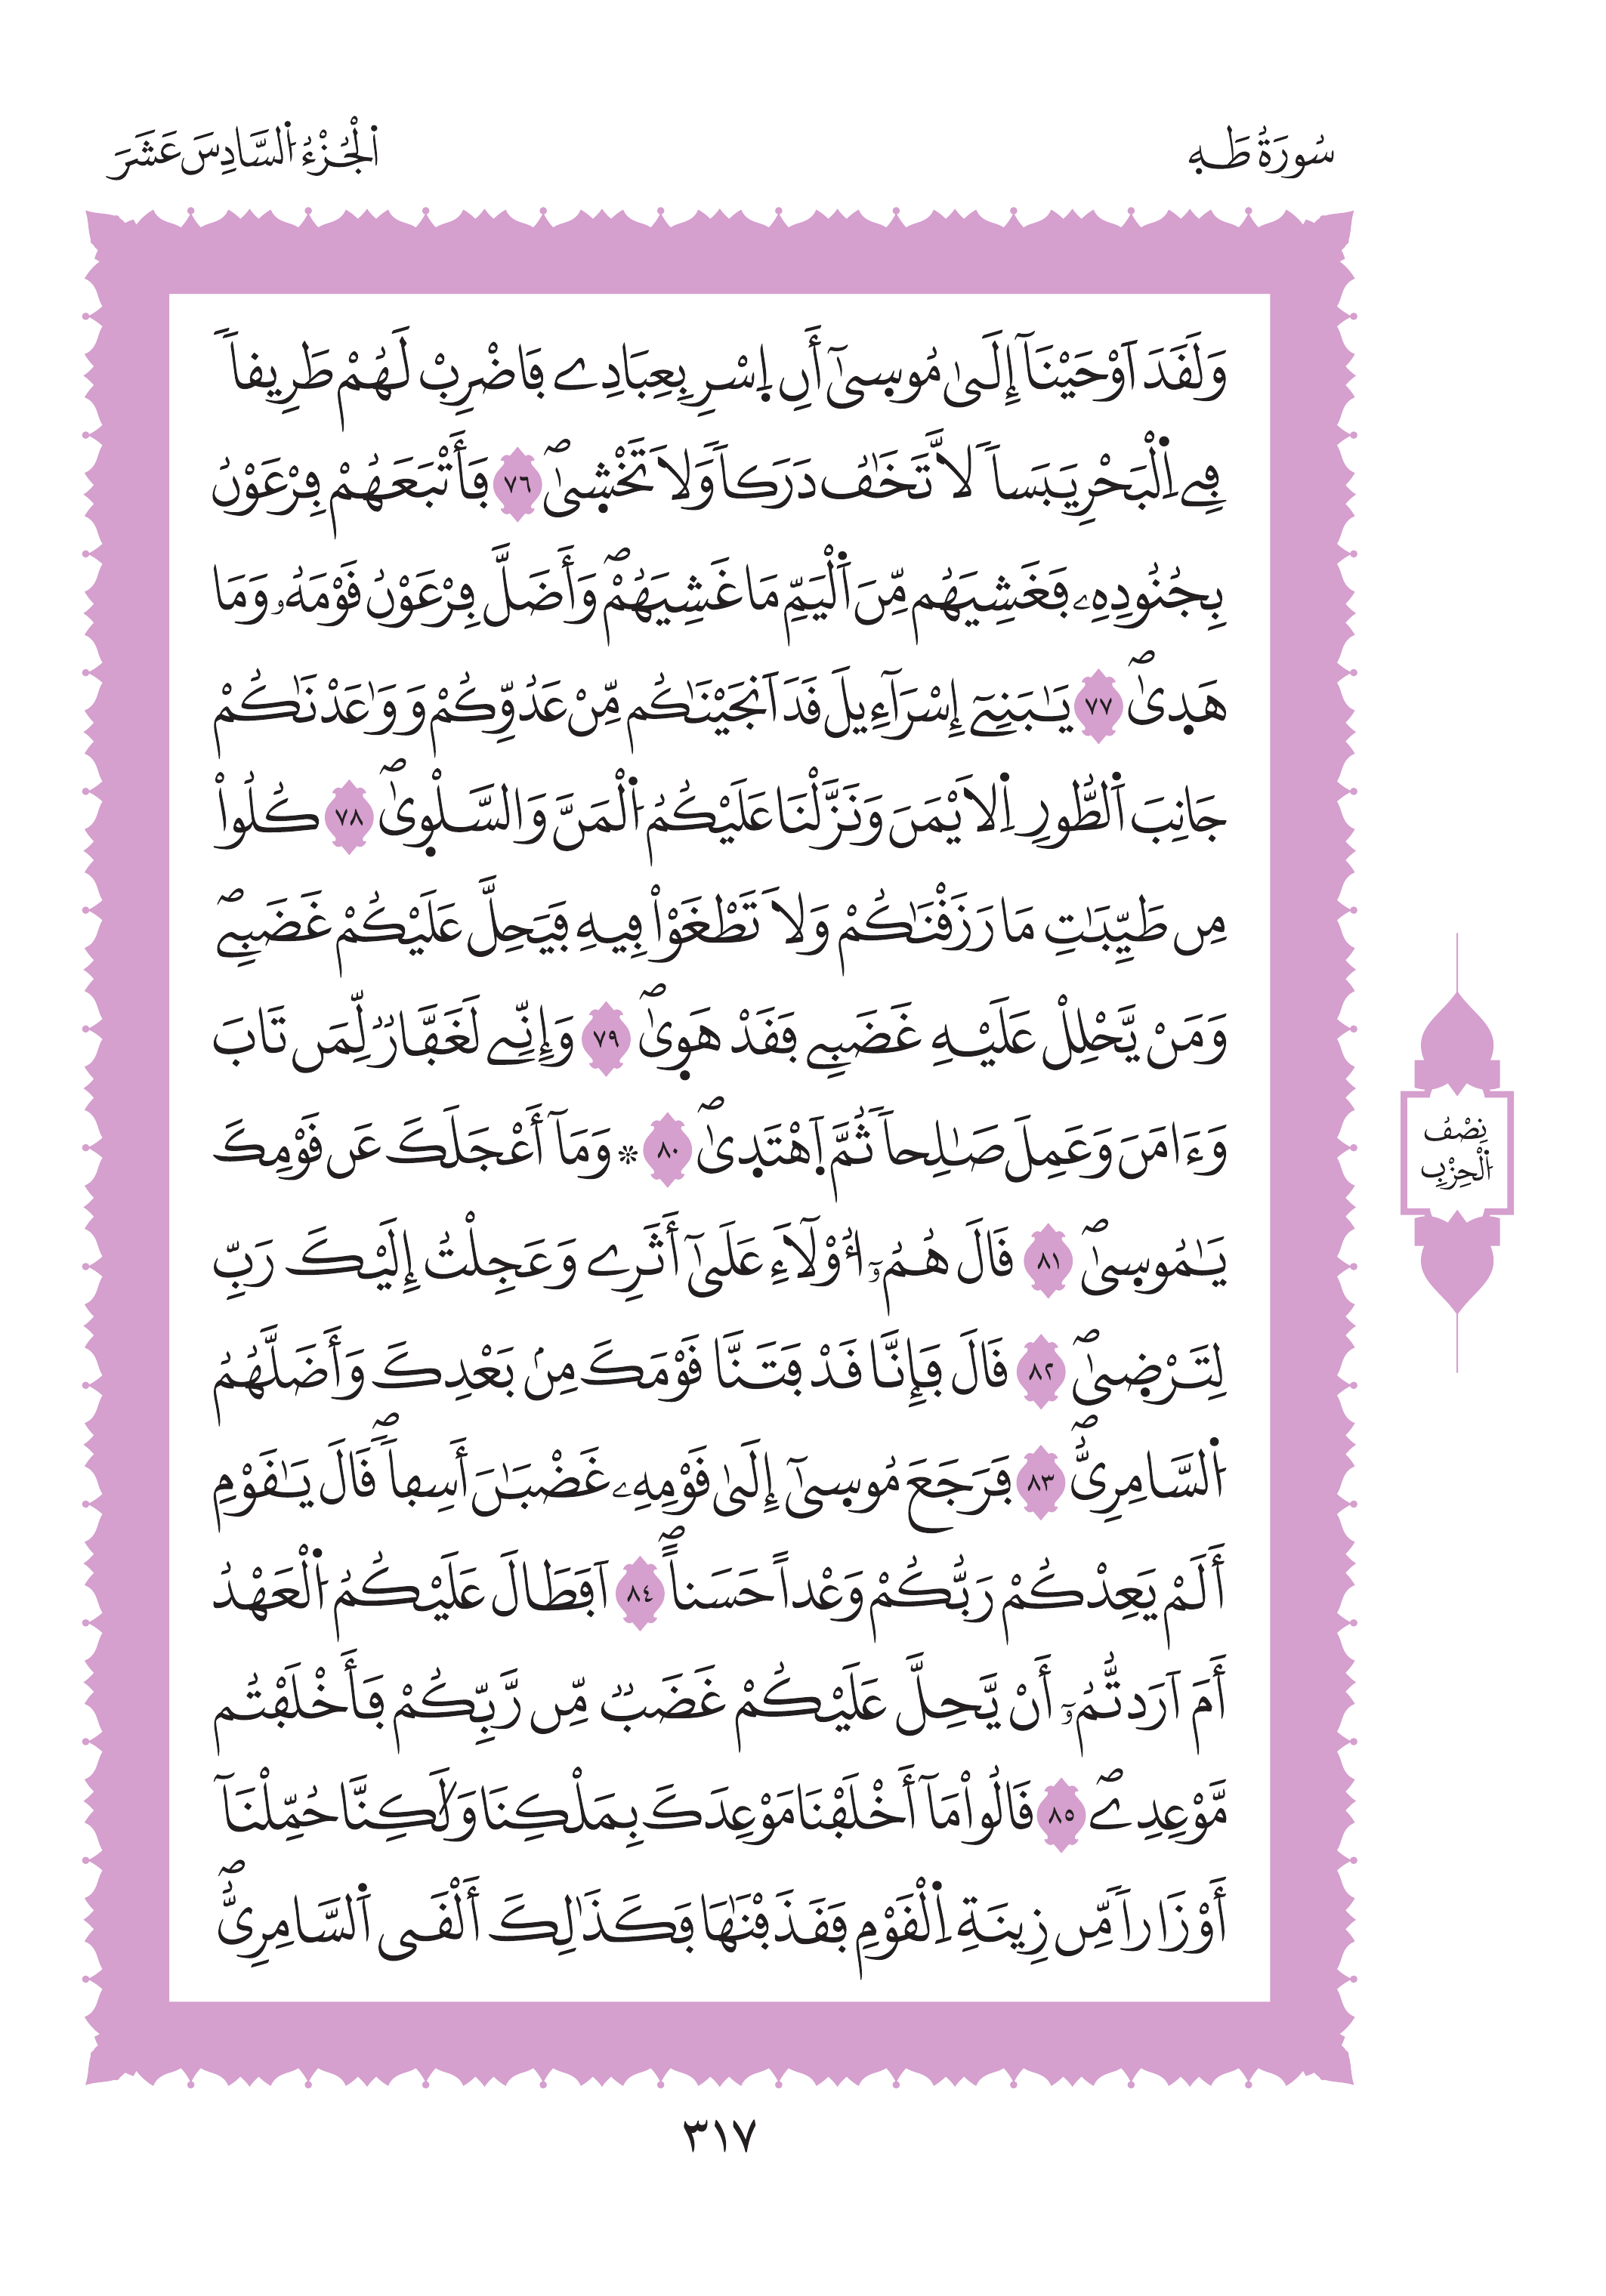 سُورَةُ طَهِ
اَ۬لْجُزْءُ اُ۬لسَّادِسَ عَشَرَ
وَلَقَدَ اَوْحَيْنَآ إِلَىٰ مُوس۪ىٰٓ أَنِ اِ۪سْرِ بِعِبَادِے فَاضْرِبْ لَهُمْ طَرِيقاٗ
فِے اِ۬لْبَحْرِ يَبَساٗ لَّا تَخَٰفُ دَرَكاٗ وَلَا تَخْش۪ىٰۖ ٧٦ فَأَتْبَعَهُمْ فِرْعَوْنُ
بِجُنُودِهِۦ فَغَشِيَهُم مِّنَ اَ۬لْيَمِّ مَا غَشِيَهُمْۖ وَأَضَلَّ فِرْعَوْنُ قَوْمَهُۥ وَمَا
هَد۪ىٰۖ ٧٧ يَٰبَنِےٓ إِسْرَآءِيلَ قَدَ اَنجَيْنَٰكُم مِّنْ عَدُوِّكُمْ وَوَٰعَدْنَٰكُمْ
جَانِبَ اَ۬لطُّورِ اِ۬لَايْمَنَ وَنَزَّلْنَا عَلَيْكُمُ اُ۬لْمَنَّ وَالسَّلْو۪ىٰۖ ٧٨ كُلُواْ
مِن طَيِّبَٰتِ مَا رَزَقْنَٰكُمْ وَلَا تَطْغَوْاْ فِيهِ فَيَحِلَّ عَلَيْكُمْ غَضَبِےۖ
وَمَنْ يَّحْلِلْ عَلَيْهِ غَضَبِے فَقَدْ هَو۪ىٰۖ ٧٩ وَإِنِّے لَغَفَّارٞ لِّمَن تَابَ
وَءَامَنَ وَعَمِلَ صَٰلِحاٗ ثُمَّ اَ۪هْتَد۪ىٰۖ ٨٠ ۞ وَمَآ أَعْجَلَكَ عَن قَوْمِكَ
يَٰمُوس۪ىٰۖ ٨١ قَالَ هُمُۥٓ أُوْلَآءِ عَلَىٰٓ أَثَرِے وَعَجِلْتُ إِلَيْكَ رَبِّ
لِتَرْض۪ىٰۖ ٨٢ قَالَ فَإِنَّا قَدْ فَتَنَّا قَوْمَكَ مِنۢ بَعْدِكَ وَأَضَلَّهُمُ
اُ۬لسَّامِرِيُّۖ ٨٣ فَرَجَعَ مُوس۪ىٰٓ إِلَىٰ قَوْمِهِۦ غَضْبَٰنَ أَسِفاٗۖ قَالَ يَٰقَوْمِ
أَلَمْ يَعِدْكُمْ رَبُّكُمْ وَعْداً حَسَناًۖ ٨٤ اَفَطَالَ عَلَيْكُمُ اُ۬لْعَهْدُ
أَمَ اَرَدتُّمُۥٓ أَنْ يَّحِلَّ عَلَيْكُمْ غَضَبٞ مِّن رَّبِّكُمْ فَأَخْلَفْتُم
مَّوْعِدِےۖ ٨٥ قَالُواْ مَآ أَخْلَفْنَا مَوْعِدَكَ بِمَلْكِنَا وَلَٰكِنَّا حُمِّلْنَآ
أَوْزَاراٗ مِّن زِينَةِ اِ۬لْقَوْمِ فَقَذَفْنَٰهَا فَكَذَٰلِكَ أَلْقَى اَ۬لسَّامِرِيُّۖ
نِصْفُ
اُ۬لْحِزْبِ
٣١٧